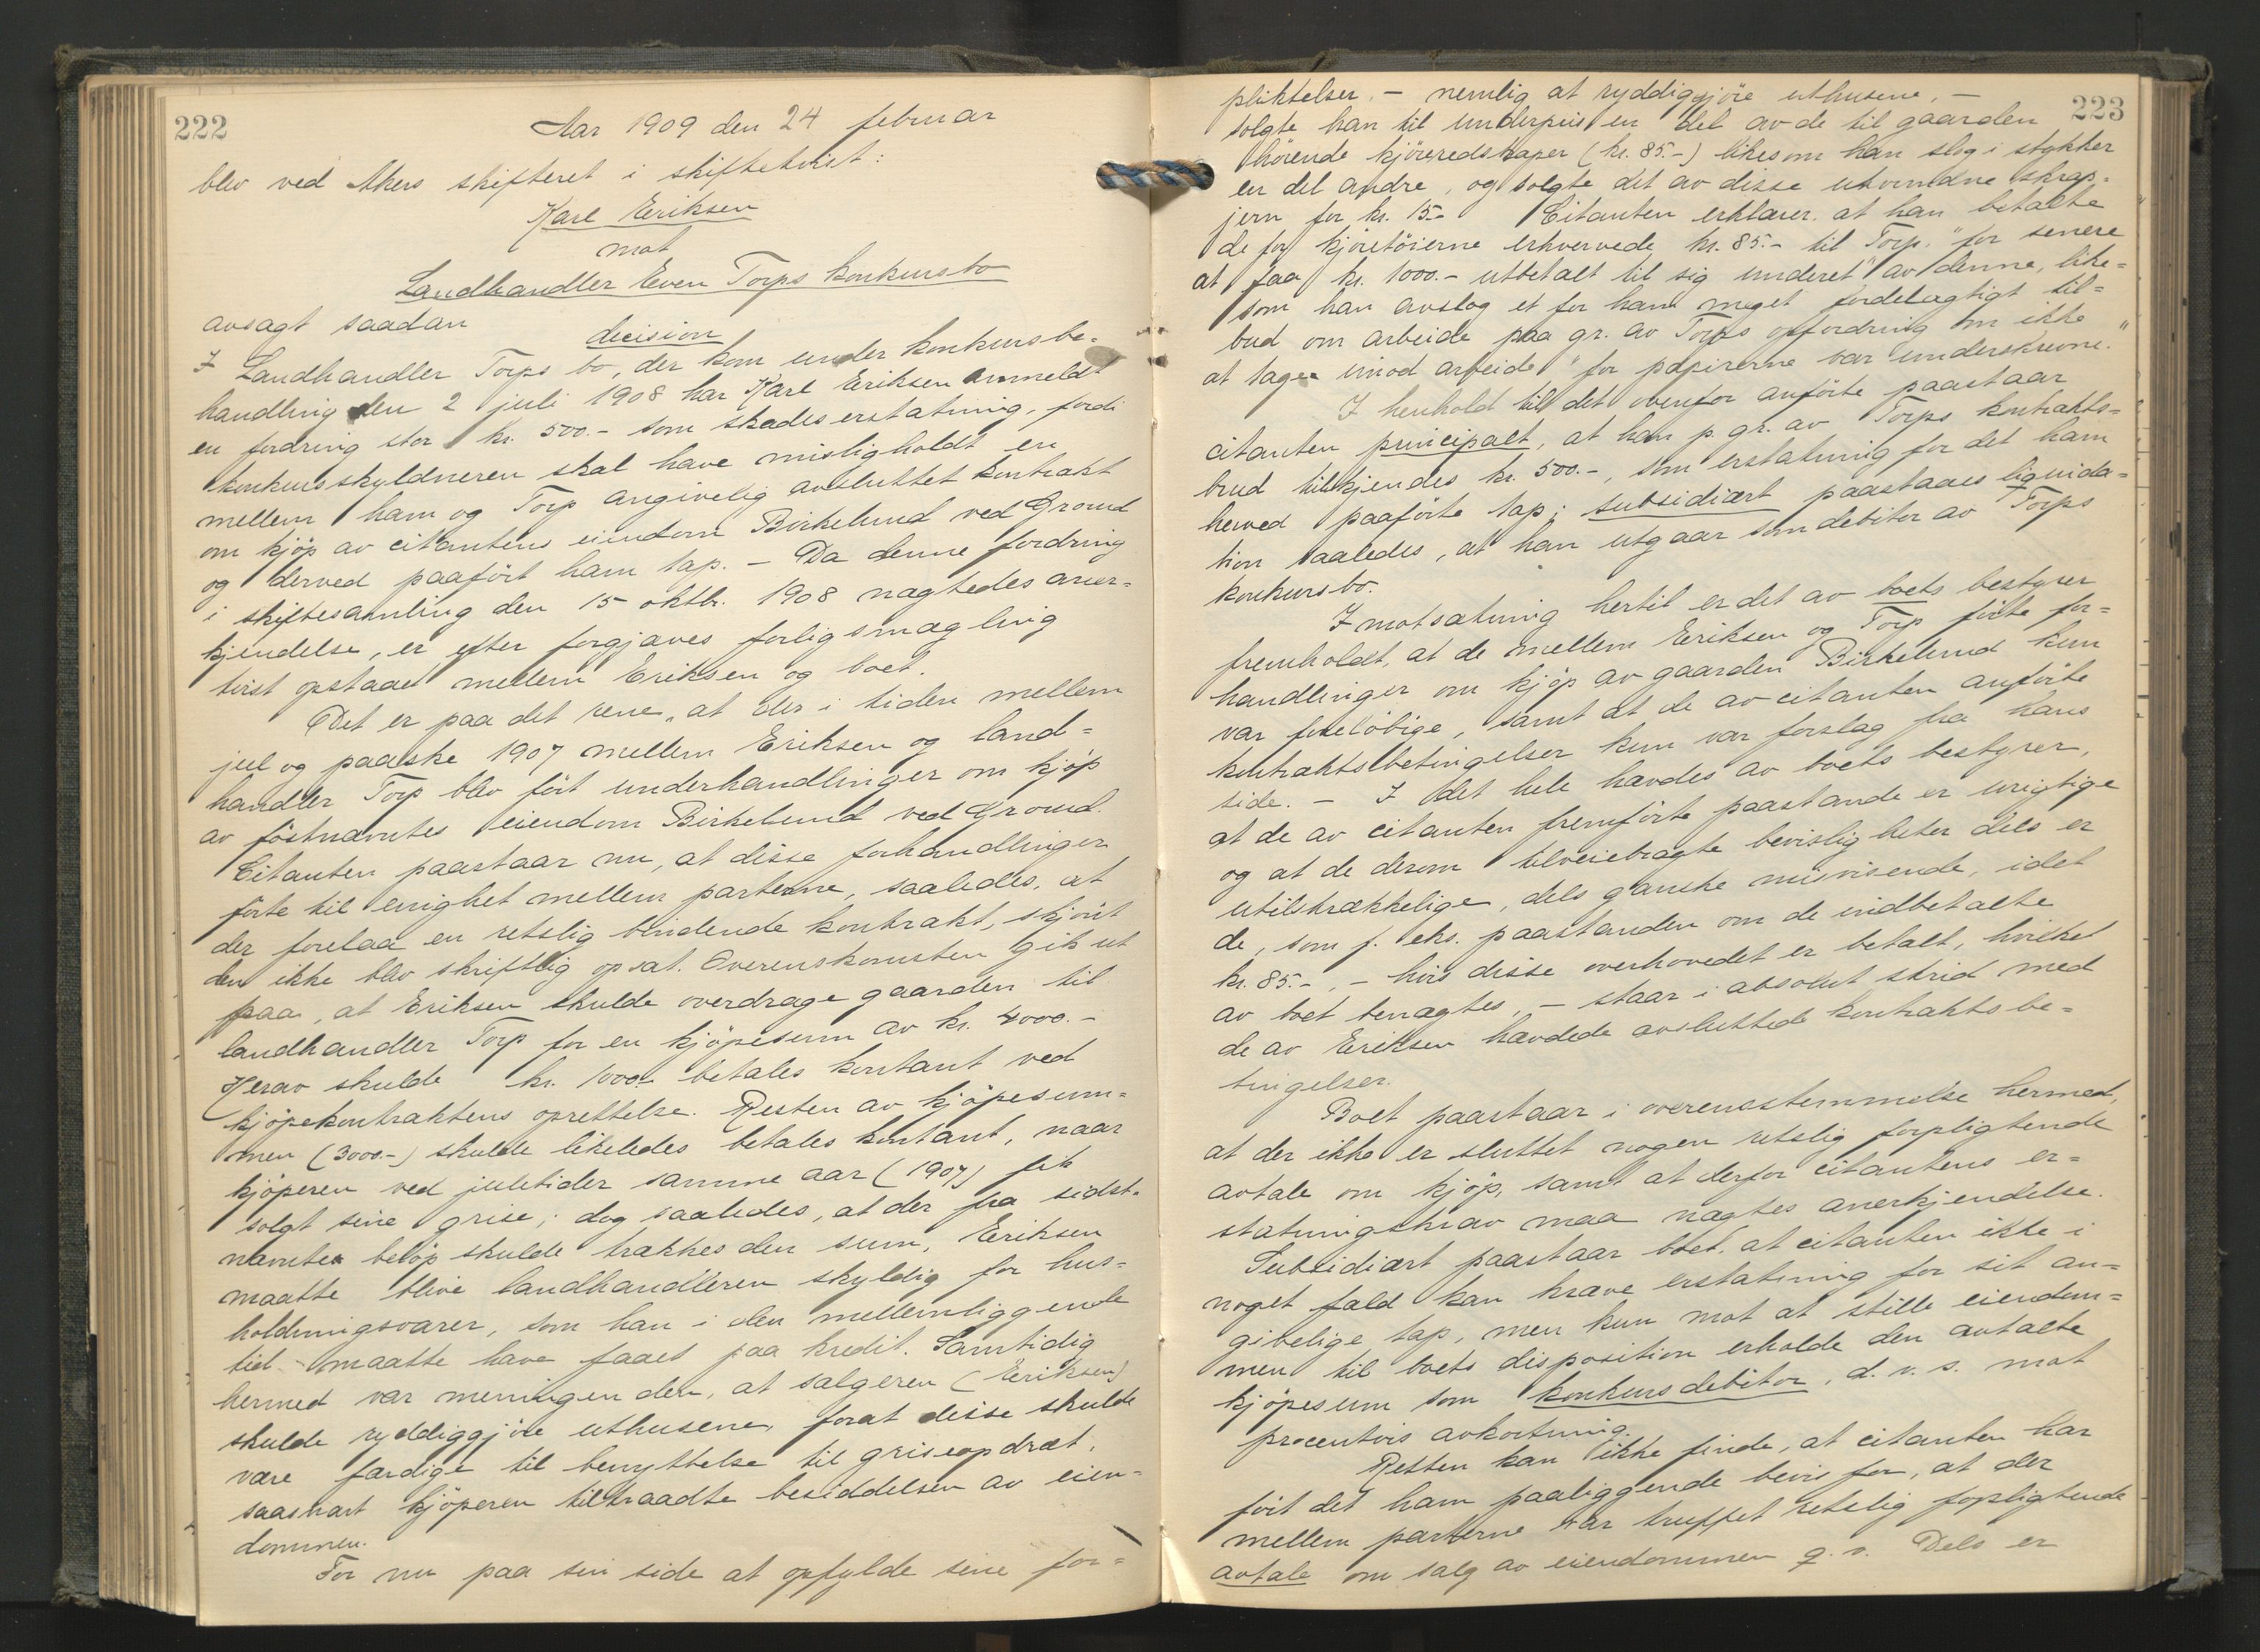 222
Aar 1909 den 24 februar
blev ved Akers skifteret i skiftetvist:
Karl Eriksen
mot
Landhandler Even Torps konkursbo
avsagt saadan
decision
I Landhandler Torps bo, der kom under konkursbe-
handling den 2 juli 1908 har Karl Eriksen anmeldt
en fordring stor kr. 500.- som skadeserstatning, fordi
konkursskyldneren skal have misligholdt en
mellem ham og Torp angivelig avsluttet kontrakt
om kjøp av citantens eiendom Birkelund ved Grorud
og derved paaført ham tap. - Da denne fordring
i skiftesamling den 15 oktbr. 1908 nægtedes aner-
kjendelse, er efter forgjæves forligsmægling
tvist opstaaet mellem Eriksen og boet.
Det er paa det rene, at der i tiden mellem
jul og paaske 1907 mellem Eriksen og land-
handler Torp blev ført underhandlinger om kjøp
av førstnævntes eiendom Birkelund ved Grorud.
Citanten paastaar nu, at disse forhandlinger
førte til enighet mellem parterne, saaledes, at
der forelaa en retslig bindende kontrakt, skjønt
den ikke blev skriftlig opsat. Overenskomsten gik ut
paa, at Eriksen skulde overdrage gaarden til
landhandler Torp for en kjøpesum av kr. 4000.-
Herav skulde kr. 1000.- betales kontant ved
kjøpekontraktens oprettelse. Resten av kjøpesum-
men (3000.-) skulde likeledes betales kontant, naar
kjøperen ved juletider samme aar (1907) fik
solgt sine grise; dog saaledes, at der fra sidst-
nævnte beløp skulde trækkes den sum, Eriksen
maatte blive landhandleren skyldig for hus-
holdningsvarer, som han i den mellemliggende
tid maatte have faaet paa kredit. Samtidig
hermed var meningen den, at sælgeren (Eriksen)
skulde ryddiggjøre uthusene, forat disse skulde
være færdige til benyttelse til griseopdræt,
saasnart kjøperen tiltraadte besiddelsen av eien-
dommen.
For nu paa sin side at opfylde sine for-
223
pliktelser, - nemlig at ryddiggjøre uthusene, -
solgte han til underpris en del av de til gaarden
hørende kjøreredskaper (kr. 85.-) likesom han slog i stykker
en del andre, og solgte det av disse utvundne skrap-
jern for kr. 15.- Citanten erklærer, at han betalte
de for kjøretøierne erhvervede kr. 85.- til Torp, "for senere
at faa kr. 1000.- utbetalt til sig underet" av denne, like-
som han avslog et for ham meget fordelagtigt til-
bud om arbeide paa gr. av Torps opfordring om ikke
at tage imod arbeide "for papirerne var underskrevne."
I henhold til det ovenfor anførte paastaar
citanten principalt, at han p. gr. av Torps kontrakts-
brud tilkjendes kr. 500.-, som erstatning for det ham
herved paaførte tap; subsidiært paastaaes liquida-
tion saaledes, at han utgaar som debitor av Torps
konkursbo.
I motsætning hertil er det av boets bestyrer
fremholdt, at de mellem Eriksen og Torp førte for-
handlinger om kjøp av gaarden Birkelund kun
var foreløbige, samt at de av citanten anførte
kontraktsbetingelser kun var forslag fra hans
side. - I det hele hævdes av boets bestyrer,
at de av citanten fremførte paastande er urigtige
og at de derom tilveiebragte bevisligheter dels er
utilstrækkelige, dels ganske misvisende, idet
de, som f. eks. paastanden om de indbetalte
kr. 85.-, - hvis disse overhovedet er betalt, hvilket
av boet benægtes, - staar i absolut strid med
de av Eriksen hævdede avsluttede kontraktsbe-
tingelser.
Boet paastaar i overensstemmelse hermed,
at der ikke er sluttet nogen retslig forpligtende
avtale om kjøp, samt at derfor citantens er-
statningskrav maa nægtes anerkjendelse.
Subsidiært paastaar boet, at citanten ikke i
noget fald kan kræve erstatning for sit an-
givelige tap, men kun mot at stille eiendom-
men til boets disposition erholde den avtalte
kjøpesum som konkursdebitor, d. v. s. mot
procentvis avkortning.
Retten kan ikke finde, at citanten har
ført det ham paaliggende bevis for, at der
mellem parterne var truffet retslig forpligtende
avtale om salg av eiendommen q. v. Dels er